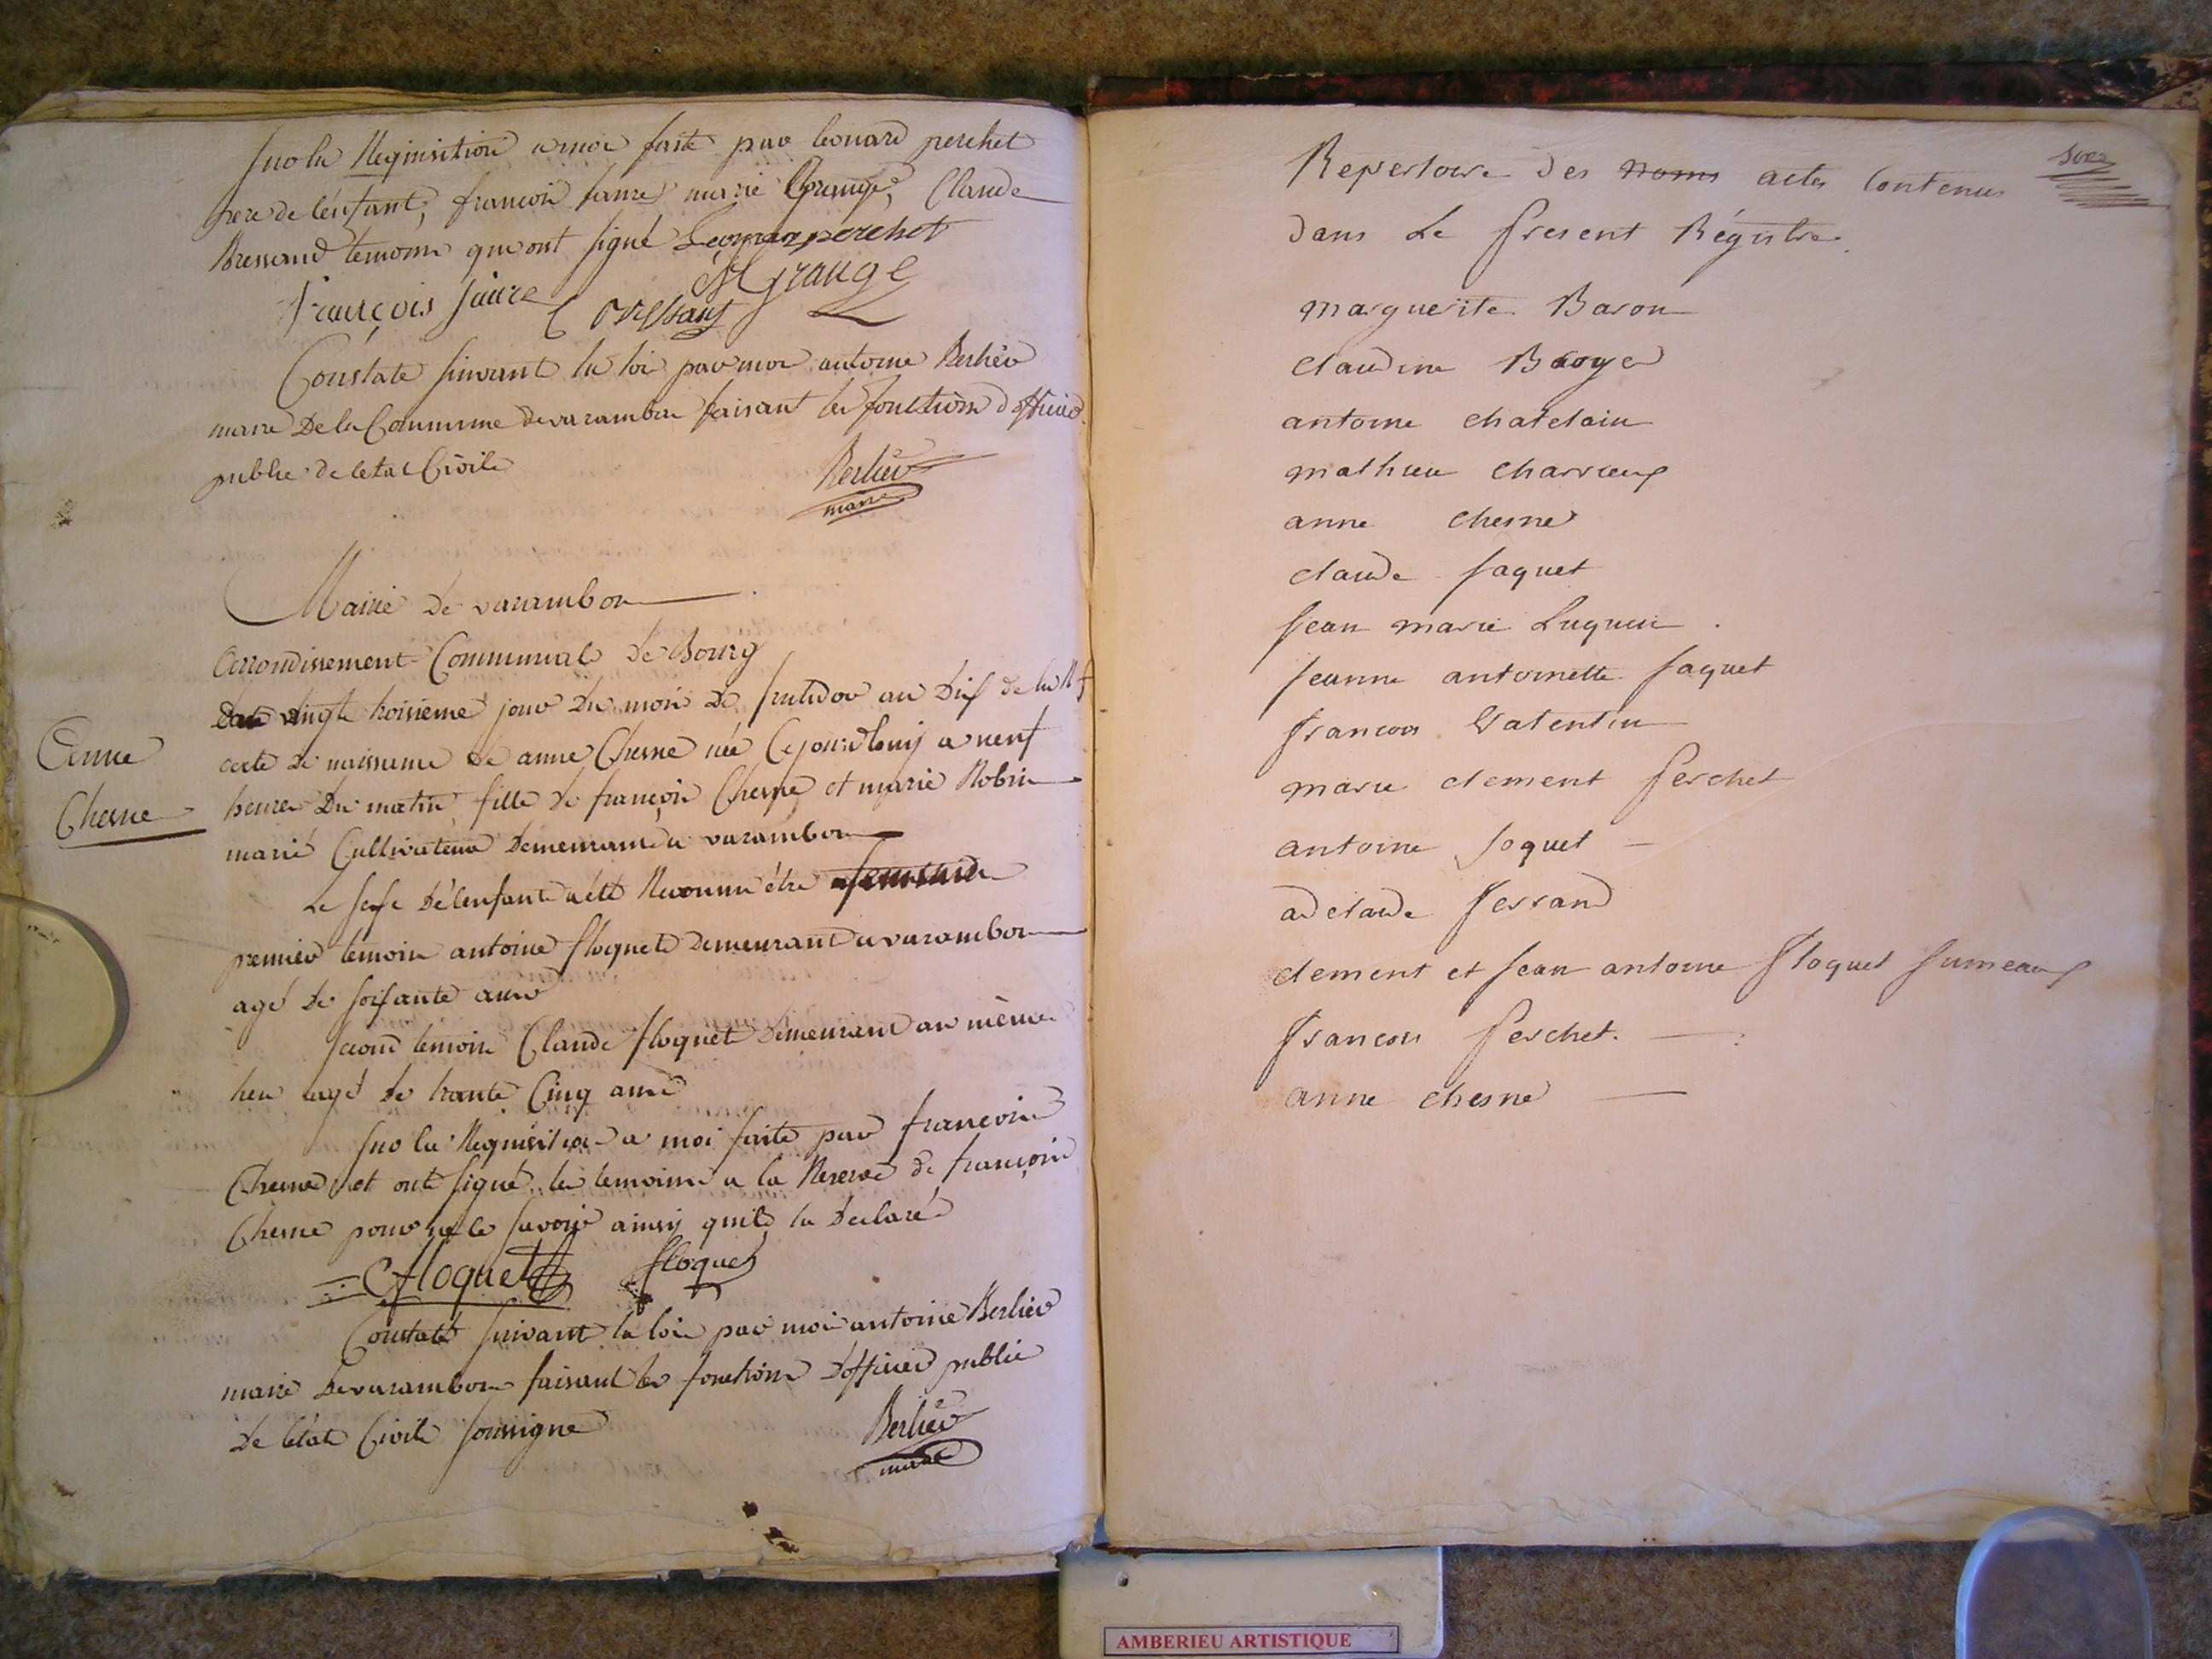 Sur la Requisition a moi faite par leonard perchet
pere de l'enfant, francois faure marie Grange, Claude
Bressand temoins qui ont signé Leonard perchet
François faure C Bressand M Grange
Constaté suivant la loi par moi antoine Berlier
maire de la Commune de varambon faisant les fonctions d'officier
public de letat Civile
Berlier
maire
Mairie de varambon
Arrondissement Communal de Bourg
Du vingt troisième jour du mois de frutidor an dix de la R f
acte de naissance de anne Chesne née Cejourdhuy a neuf
heures du matin, fille de françois Chesne et marie Robin
marié Cultivateur demeurant a varambon
Anne
Chesne
Le sexe de lenfant a été Reconnu être
premier temoin antoine floquet demeurant a varambon
agé de soixante ans
second temoin Claude floquet demeurant au même
lieu agé de trante Cinq ans
Sur la Requisition a moi faite par françois
Chesne et ont signé les temoins a la Reserve de françois
Chesne pour ne le savoir ainsy quil la declaré
Cfloquet floquet
Constaté suivant la loi par moi antoine Berlier
maire de varambon faisant les fonctions d'officier public
de létat Civile soussigne
Berlier
maire
Repertoire des noms actes Contenus
dans Le present Régistre
marguerite Baron
claudine Broyer
antoine chatelain
mathieu charveux
anne chesne
claude faquet
Jean marie Luquin
Jeanne antoinette faquet
francois Vatentin
marie clement perchet
antoine foquet
adelaide ferrand
clement et Jean antoine floquet Jumeaux
francois perchet.
anne chesne
AMBERIEU ARTISTIQUE